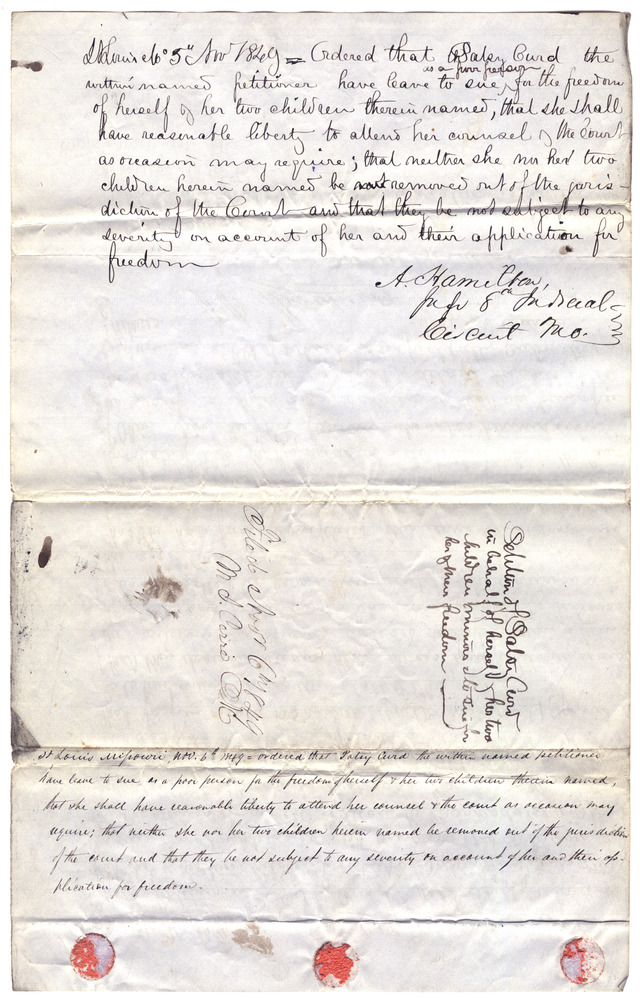 St Louis Mo 5th Nov 1849 = Ordered that Patsy Curd the
as a poor person
within named petitioner have leave to sue, for the freedom
of herself & her two children therein named; that she shall
have reasonable liberty to attend her counsel & the Court
as occasion may require; that neither she nor her two
children herein named be removed out of the juris-
diction of the Court and that they be not subject to any
severity on account of her and their application for
freedom
A. Hamilton,
8th Judicial
Circuit Mo.
Petition of Patsy Curd
in behalf of herself & her two
children minors to sue for
her & their freedom
Filed Nov 6th 1849
St Louis Missouri Nov. 6th 1849 = ordered that Patsy Curd the within named petitioner
have leave to sue as a poor person for the freedom of herself & her two children therein named,
that she shall have reasonable liberty to attend her counsel & the court as occasion may
require; that neither she nor her two children herein named be removed out of the jurisdiction
of the court and that they be not subject to any severity on account of her and their ap-
plication for freedom.